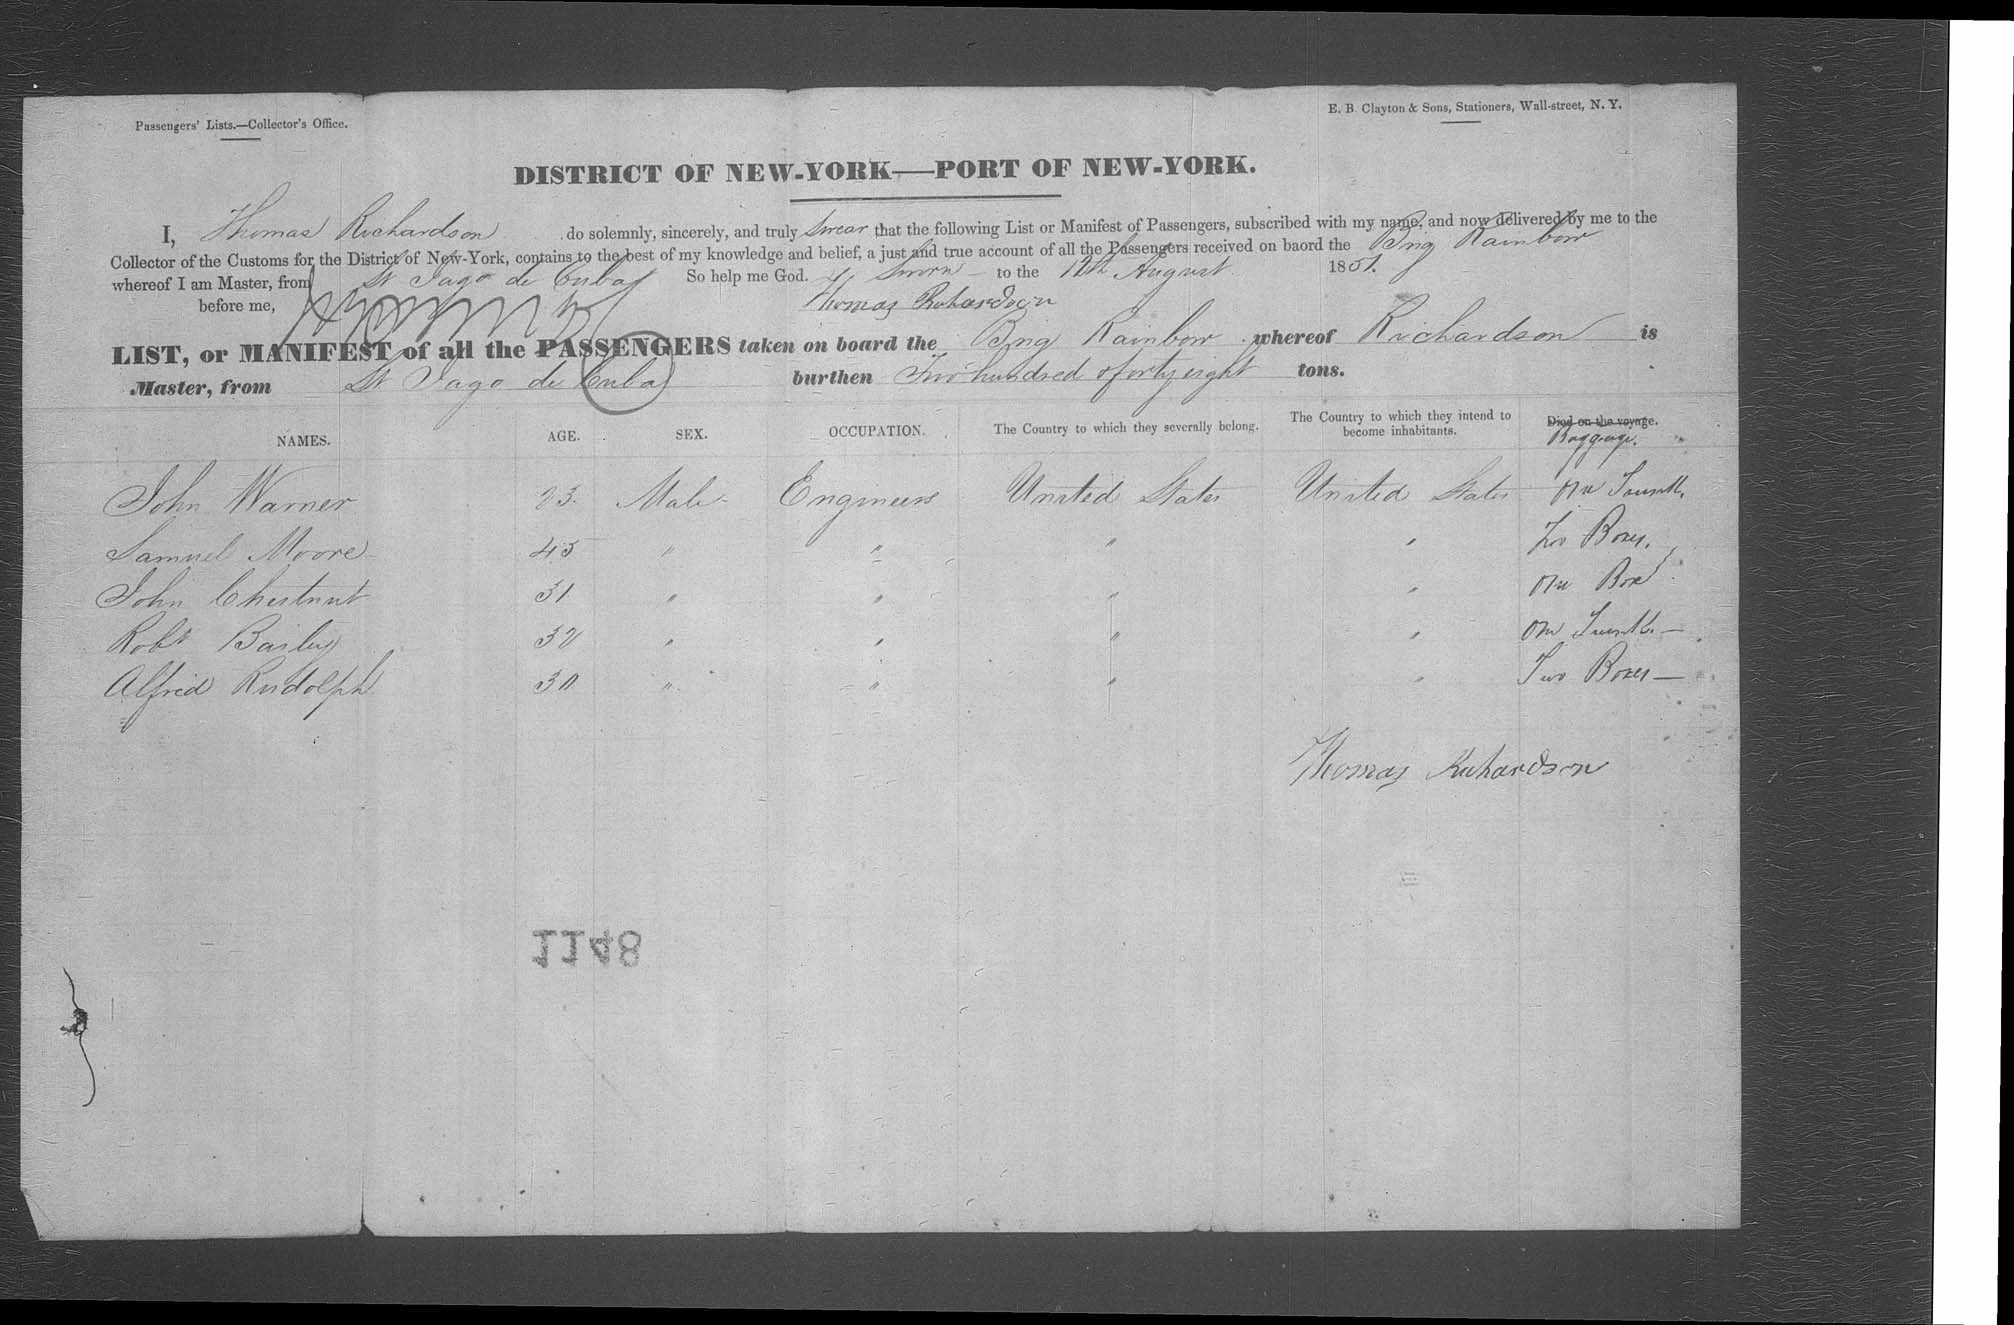 Passengers' Lists.—Collector's Office.
E. B. Clayton & Sons, Stationers, Wall-street, N. Y.
DISTRICT OF NEW-YORK—PORT OF NEW-YORK.
I, Thomas Richardson do solemnly, sincerely, and truly swear that the following List or Manifest of Passengers, subscribed with my name, and now delivered by me to the
Collector of the Customs for the District of New-York, contains to the best of my knowledge and belief, a just and true account of all the Passengers received on baord the Brig Rainbow
whereof I am Master, from St Jago de Cuba So help me God. Sworn to the 12th August 1851.
before me, Thomas Richardson
LIST, or MANIFEST of all the PASSENGERS taken on board the Brig Rainbow whereof Richardson is
Master, from St Jago de Cuba burthen Two hundred & forty eight tons.
NAMES. AGE. SEX. OCCUPATION. The Country to which they severally belong. The Country to which they intend to become inhabitants. Died on the voyage. Baggage.
John Warner 23 Male Engineers United States United States One Trunk
Samuel Moore 45 " " " " Two Boxes
John Chestnut 31 " " " " One Box
Robt Bailey 32 " " " " One Trunk —
Alfred Rudolph 30 " " " " Two Boxes —
Thomas Richardson
1148